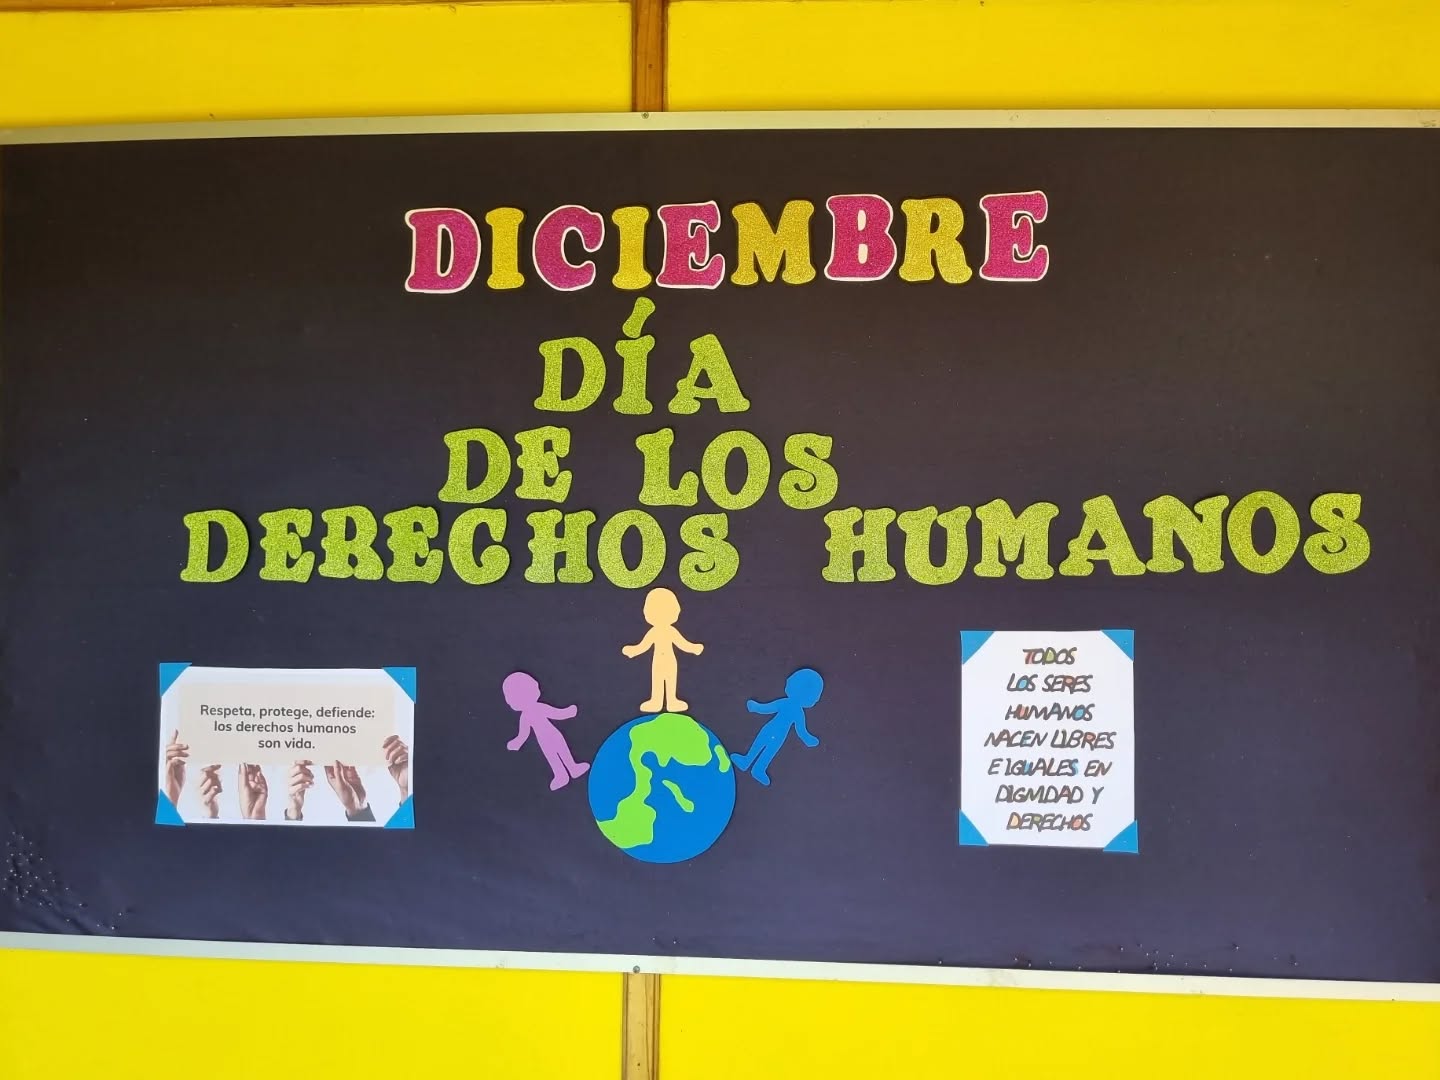 DICIEMBRE
DÍA
DE LOS
DERECHOS HUMANOS
Respeta, protege, defiende:
los derechos humanos
son vida.
TODOS
LOS SERES
HUMANOS
NACEN LIBRES
E IGUALES EN
DIGNIDAD Y
DERECHOS